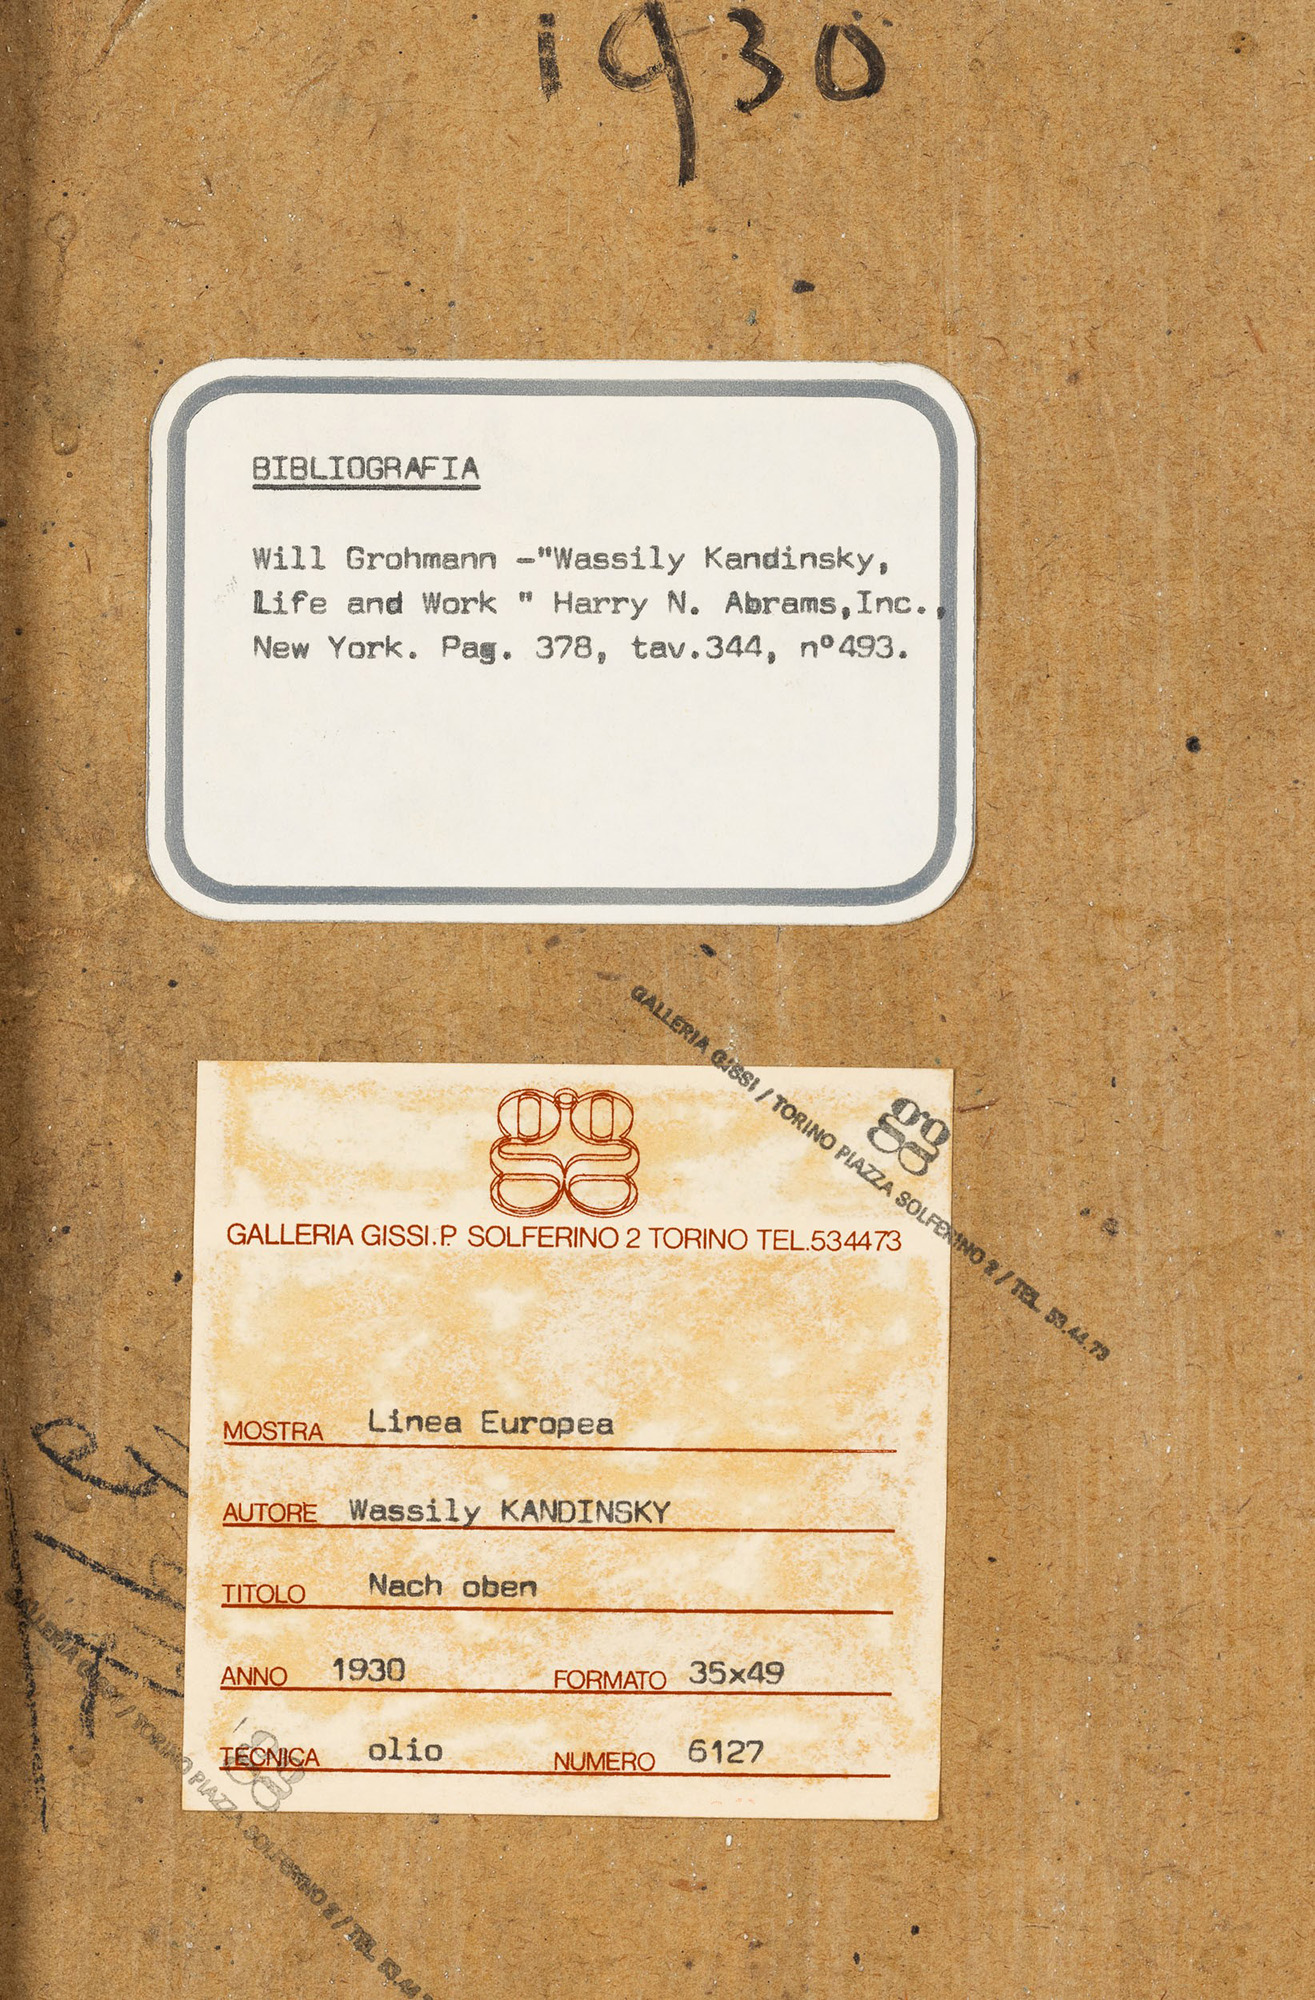 1930
BIBLIOGRAFIA
Will Grohmann -"Wassily Kandinsky,
Life and Work " Harry N. Abrams,Inc.,
New York. Pag. 378, tav.344, nº493.
GALLERIA GISSI / TORINO PIAZZA SOLFERINO 2 / TEL. 53.44.73
gg
GALLERIA GISSI.P. SOLFERINO 2 TORINO TEL.534473
MOSTRA Linea Europea
AUTORE Wassily KANDINSKY
TITOLO Nach oben
ANNO 1930 FORMATO 35x49
TECNICA olio NUMERO 6127
gg
GALLERIA GISSI / TORINO PIAZZA SOLFERINO 2 / TEL. 53.44